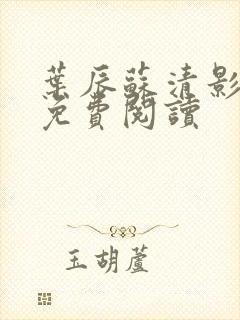 葉辰蘇清影
免費閱讀
玉胡蘆